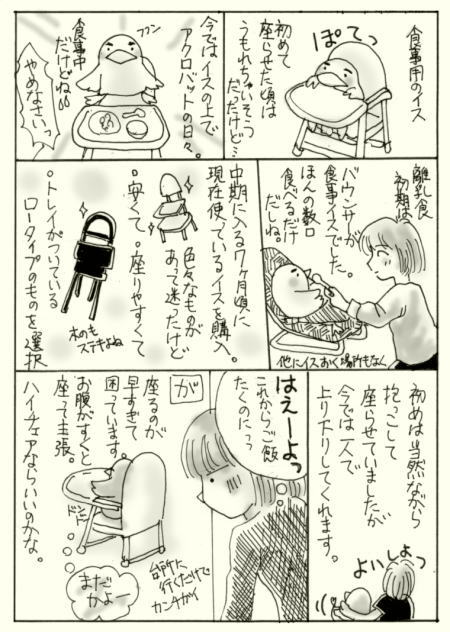 食事用のイス
ぽてっ
初めて
座らせた頃は
うもれちゃいそう
だったけど…
今ではイスの上で
アクロバットの日々。
フフン
食事中
だけどね。。
やめなさいっ
離乳食
初期は
バウンサーが
食事イスでした。
ほんの数口
食べるだけ
だしね。
他にイスおく場所もなく
中期に入る7ヶ月頃に
現在使っているイスを購入。
色々なものが
あって迷ったけど
・安くて・座りやすくて
・トレイがついている
ロータイプのものを選択
木のも
ステキよね
初めは当然ながら
抱っこして
座らせていましたが
今では一人で
上り下りしてくれます。
よいしょっ
はえーよっ
これからご飯
たくのにっっ
が
座るのが
早すぎて
困っています。
お腹がすくと
座って主張。
ハイチェアならいいのかな。
ドンドン
台所に
行くだけで
カンチガイ
まだ
かよー